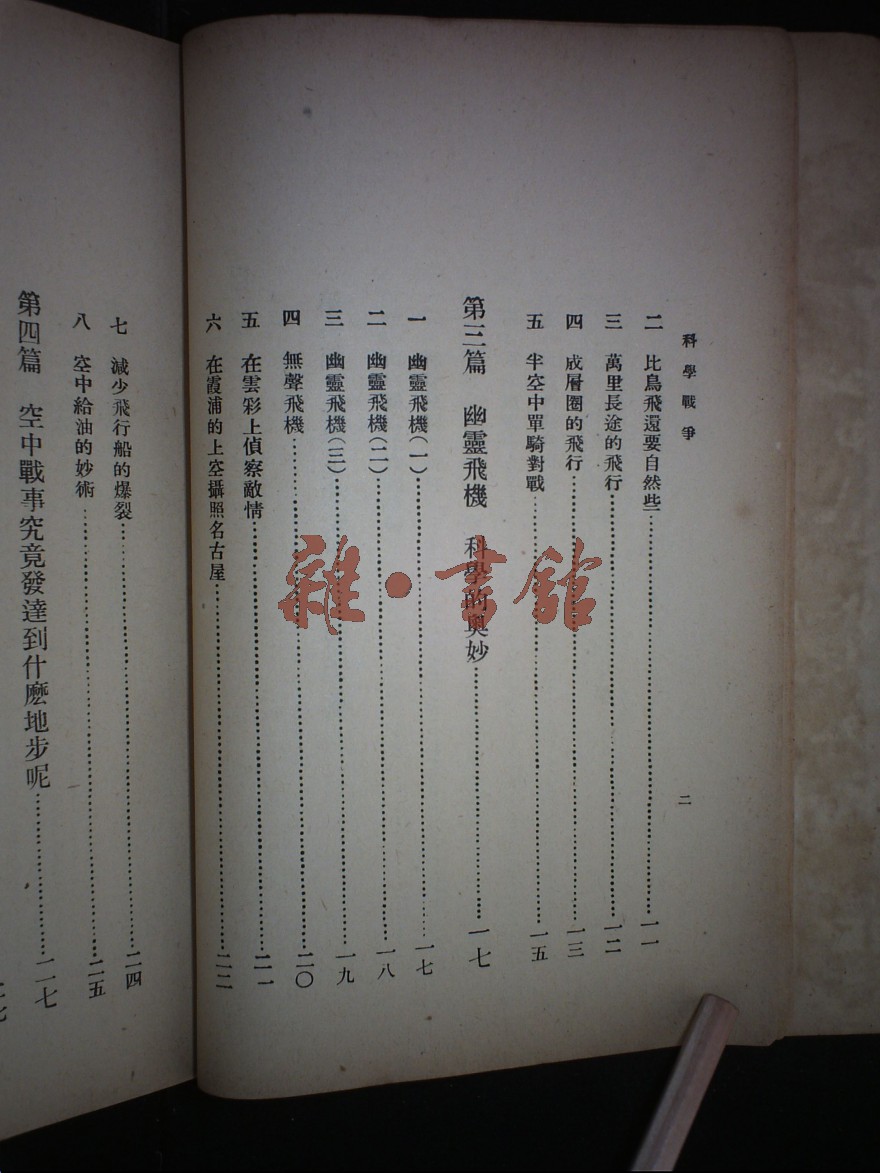 科學戰爭
二
二 比鳥飛還要自然些……一一
三 萬里長途的飛行……一二
四 成層圈的飛行……一三
五 半空中單騎對戰……一五
第三篇 幽靈飛機 科學的奧妙……一七
一 幽靈飛機(一)……一七
二 幽靈飛機(二)……一八
三 幽靈飛機(三)……一九
四 無聲飛機……二〇
五 在雲彩上偵察敵情……二一
六 在霞浦的上空攝照名古屋……二二
七 減少飛行船的爆裂……二四
八 空中給油的妙術……二五
第四篇 空中戰事究竟發達到什麽地步呢……二七
雜·書館